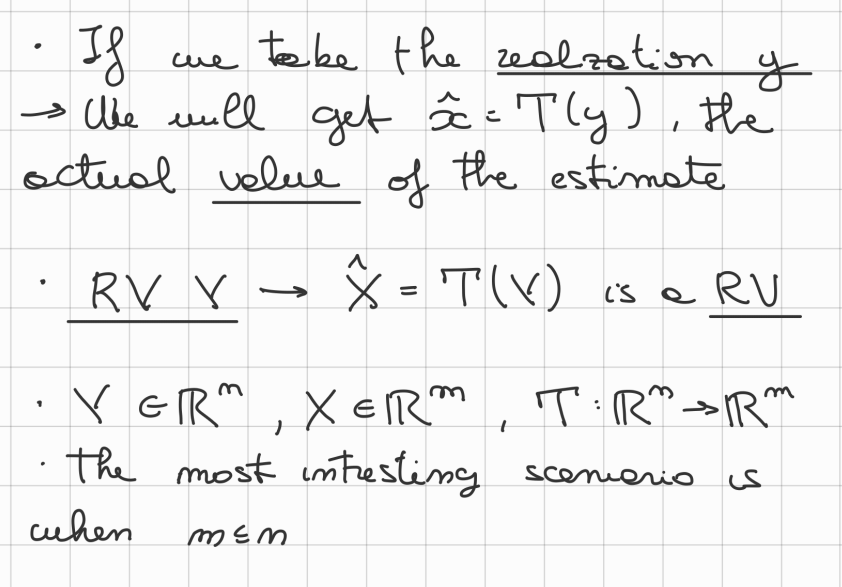 · If we take the realzation y
→ We will get x̂ = T(y), the
actual value of the estimate
· RV Y → X̂ = T(Y) is a RV
· Y ∈ ℝⁿ, X ∈ ℝᵐ, T : ℝⁿ → ℝᵐ
· The most intresting scenario is
when m ≤ n